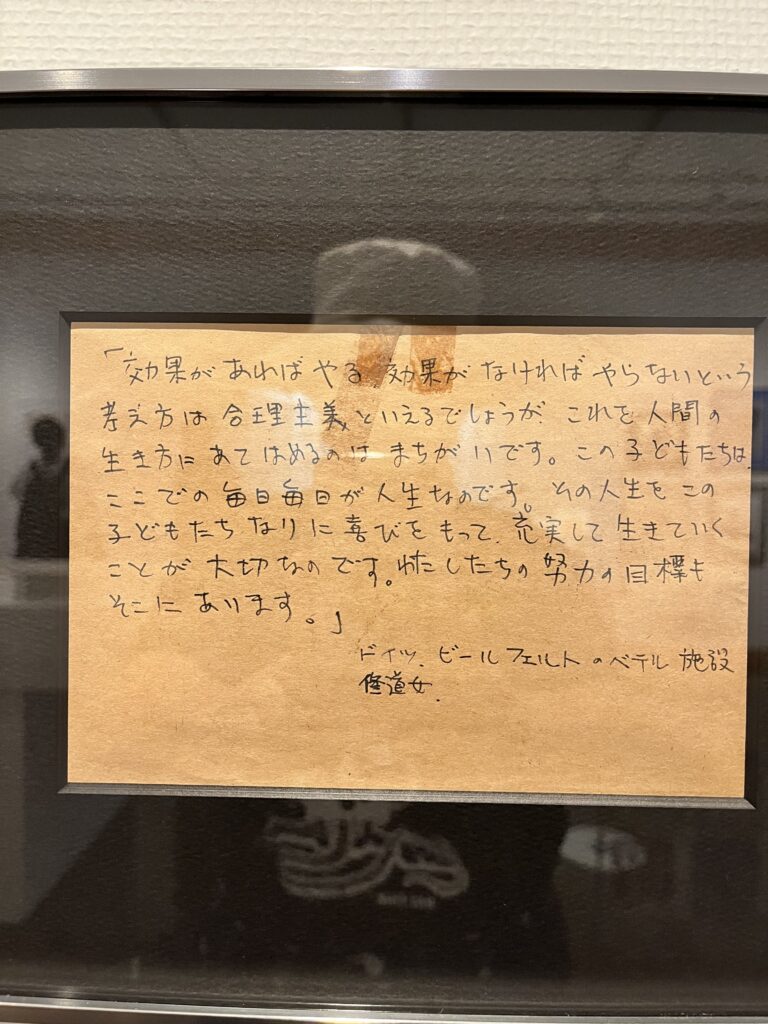 「効果があればやる、効果がなければやらないという
考え方は合理主義といえるでしょうが、これを人間の
生き方にあてはめるのはまちがいです。この子どもたちは、
ここでの毎日毎日が人生なのです。その人生をこの
子どもたちなりに喜びをもって、充実して生きていく
ことが大切なのです。わたしたちの努力の目標も
そこにあります。」
ドイツ、ビールフェルトのベテル施設
修道女.